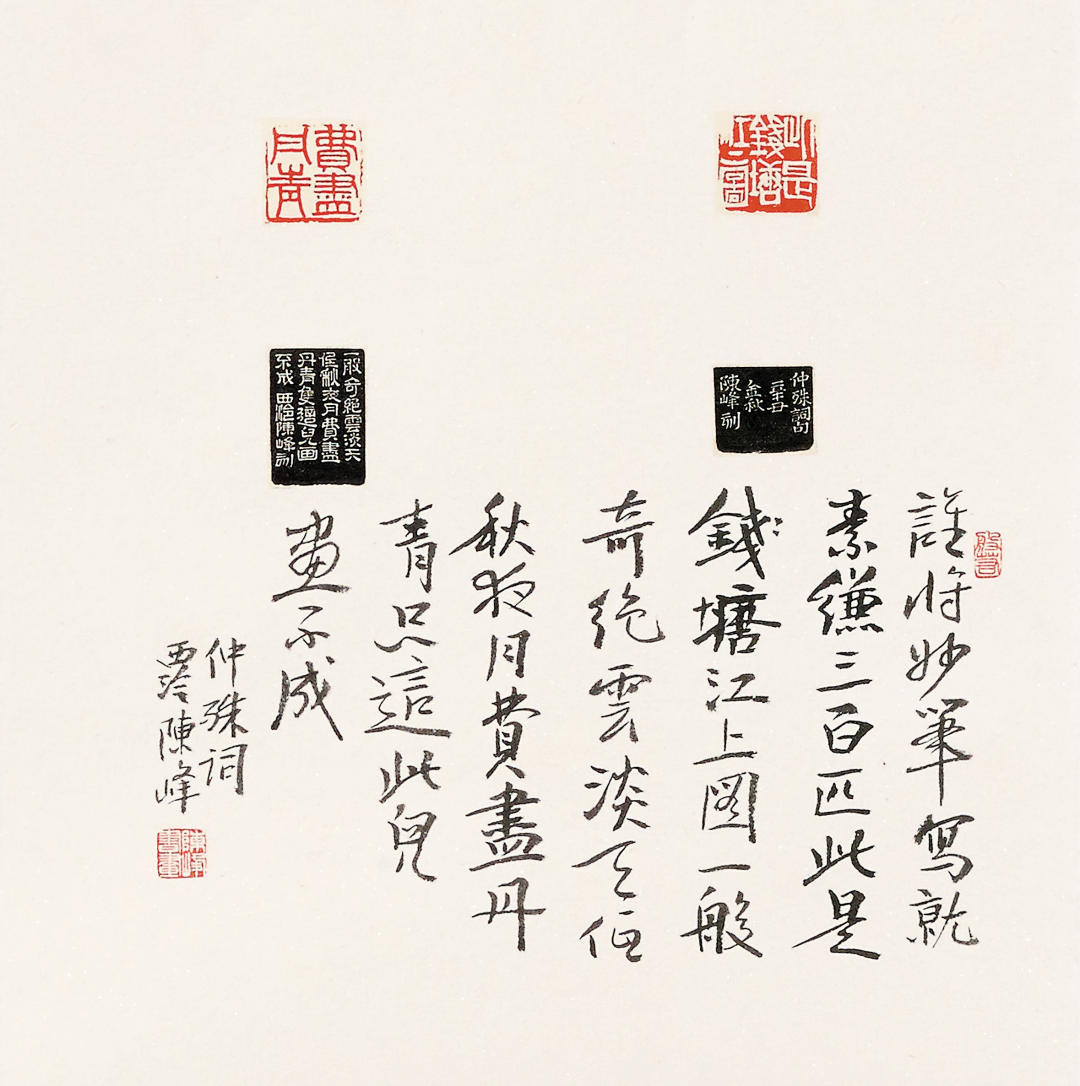 此是
錢塘
江上圖
費盡
丹青
仲殊詞句
辛丑
金秋
陳峰刻
一般奇絕雲淡天
低秋夜月費盡
丹青隻這兒画
不成 西泠陳峰刻
誰將妙筆寫就
素縑三百匹此是
錢塘江上圖一般
奇絕雲淡天低
秋夜月費盡丹
青只這此兒
畫不成
仲殊詞
西泠陳峰
陳峰
書畫